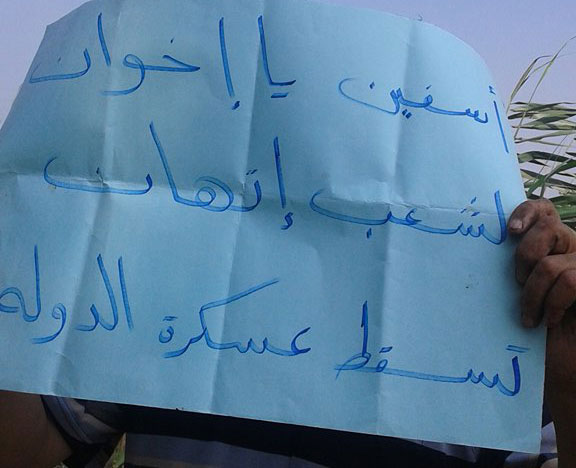 أسفين يا إخوان
لشعب إتهان
تسقط عسكرة الدوله